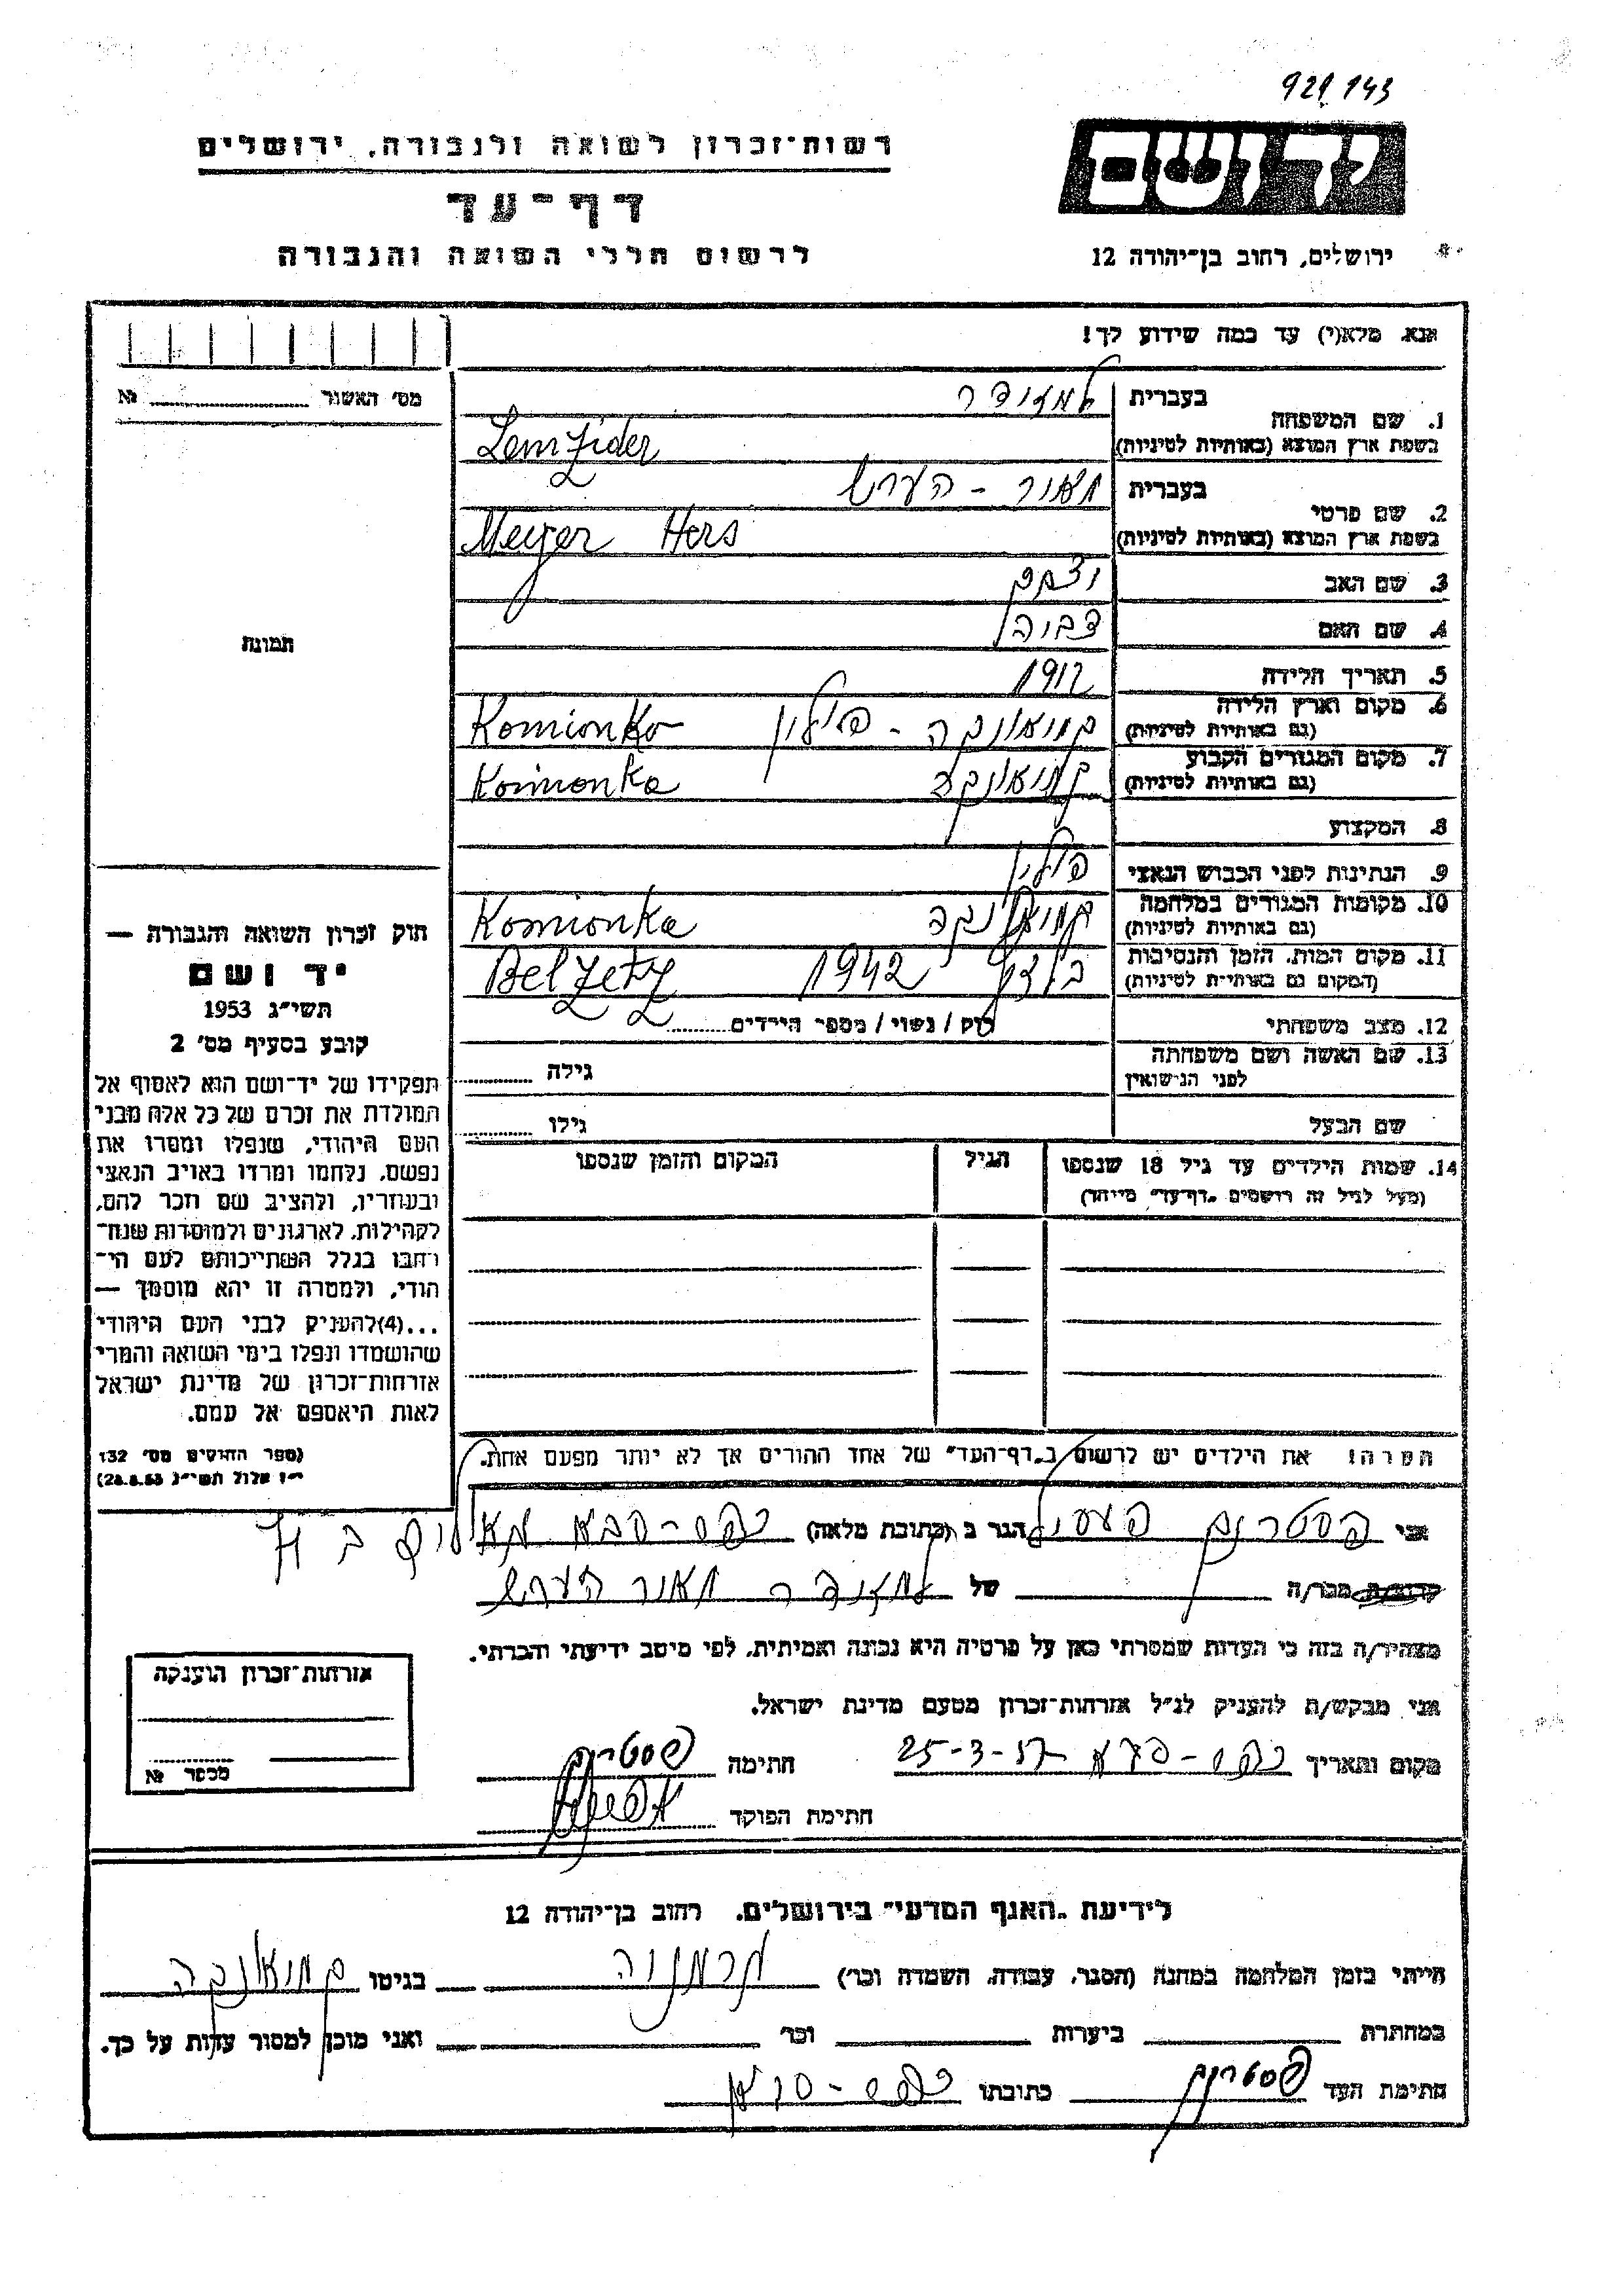 921 143
רשות־זכרון לשואה ולגבורה, ירושלים
יד ושם
דף־עד
לרשום חללי השואה והגבורה
ירושלים, רחוב בן־יהודה 12
אנא, מלא(י) עד כמה שידוע לך!
מס' האשור № 
1. שם המשפחה בעברית למזידר
בשפת ארץ המוצא (באותיות לטיניות) Lemzider
2. שם פרטי בעברית מאיר - הערש
בשפת ארץ המוצא (באותיות לטיניות) Meyer Hers
3. שם האב יצחק
4. שם האם
תמונת
5. תאריך הלידה 1912
6. מקום וארץ הלידה קמיאונקה - פולין Komionka
(גם באותיות לטיניות)
7. מקום המגורים הקבוע קמיאונקה Komionka
(גם באותיות לטיניות)
8. המקצוע
9. הנתינות לפני הכבוש הנאצי פולין
10. מקומות המגורים במלחמה קמיאונקה Komionka
(גם באותיות לטיניות)
11. מקום המות, הזמן והנסיבות בלזץ 1942 Belzetz
(המקום גם באותיות לטיניות)
12. מצב משפחתי רוק / נשוי / מספר הילדים
13. שם האשה ושם משפחתה גילה
לפני הנישואין
שם הבעל גילו
14. שמות הילדים עד גיל 18 שנספו הגיל המקום והזמן שנספו
(מעל לגיל זה רושמים "דף־עד" מיוחד)
חוק זכרון השואה והגבורה —
יד ושם
תשי"ג 1953
קובע בסעיף מס' 2
תפקידו של יד־ושם הוא לאסוף אל
המולדת את זכרם של כל אלה מבני
העם היהודי, שנפלו ומסרו את
נפשם, נלחמו ומרדו באויב הנאצי
ובעוזריו, ולהציב שם וזכר להם,
לקהילות, לארגונים ולמוסדות שנח־
רבו בגלל השתייכותם לעם הי־
הודי, ולמטרה זו יהא מוסמך —
...(4)להעניק לבני העם היהודי
שהושמדו ונפלו בימי השואה והמרי
אזרחות־זכרון של מדינת ישראל
לאות היאספם אל עמם.
(ספר החוקים מס' 132
י"ז אלול תשי"ג 28.8.53)
הערה! את הילדים יש לרשום ב"דף־העד" של אחד ההורים אך לא יותר מפעם אחת.
אני פסטרנק הגר ב (כתובת מלאה) כפר-סבא
קרוב/ה מכר/ה של למזידר מאיר הערש
מצהיר/ה בזה כי העדות שמסרתי כאן על פרטיה היא נכונה ואמיתית, לפי מיטב ידיעתי והכרתי.
אני מבקש/ת להעניק לנ"ל אזרחות־זכרון מטעם מדינת ישראל.
מקום ותאריך כפר-סבא 25-3-57 חתימה פסטרנק
חתימת הפוקד
אזרחות־זכרון הוענקה
מספר №
לידיעת "האגף המדעי" בירושלים, רחוב בן־יהודה 12
הייתי בזמן המלחמה במחנה (הסגר, עבודה, השמדה וכו') בגיטו קמיאונקה
במחתרת ביערות וכו' ואני מוכן למסור עדות על כך.
חתימת העד פסטרנק כתובתו כפר-סבא